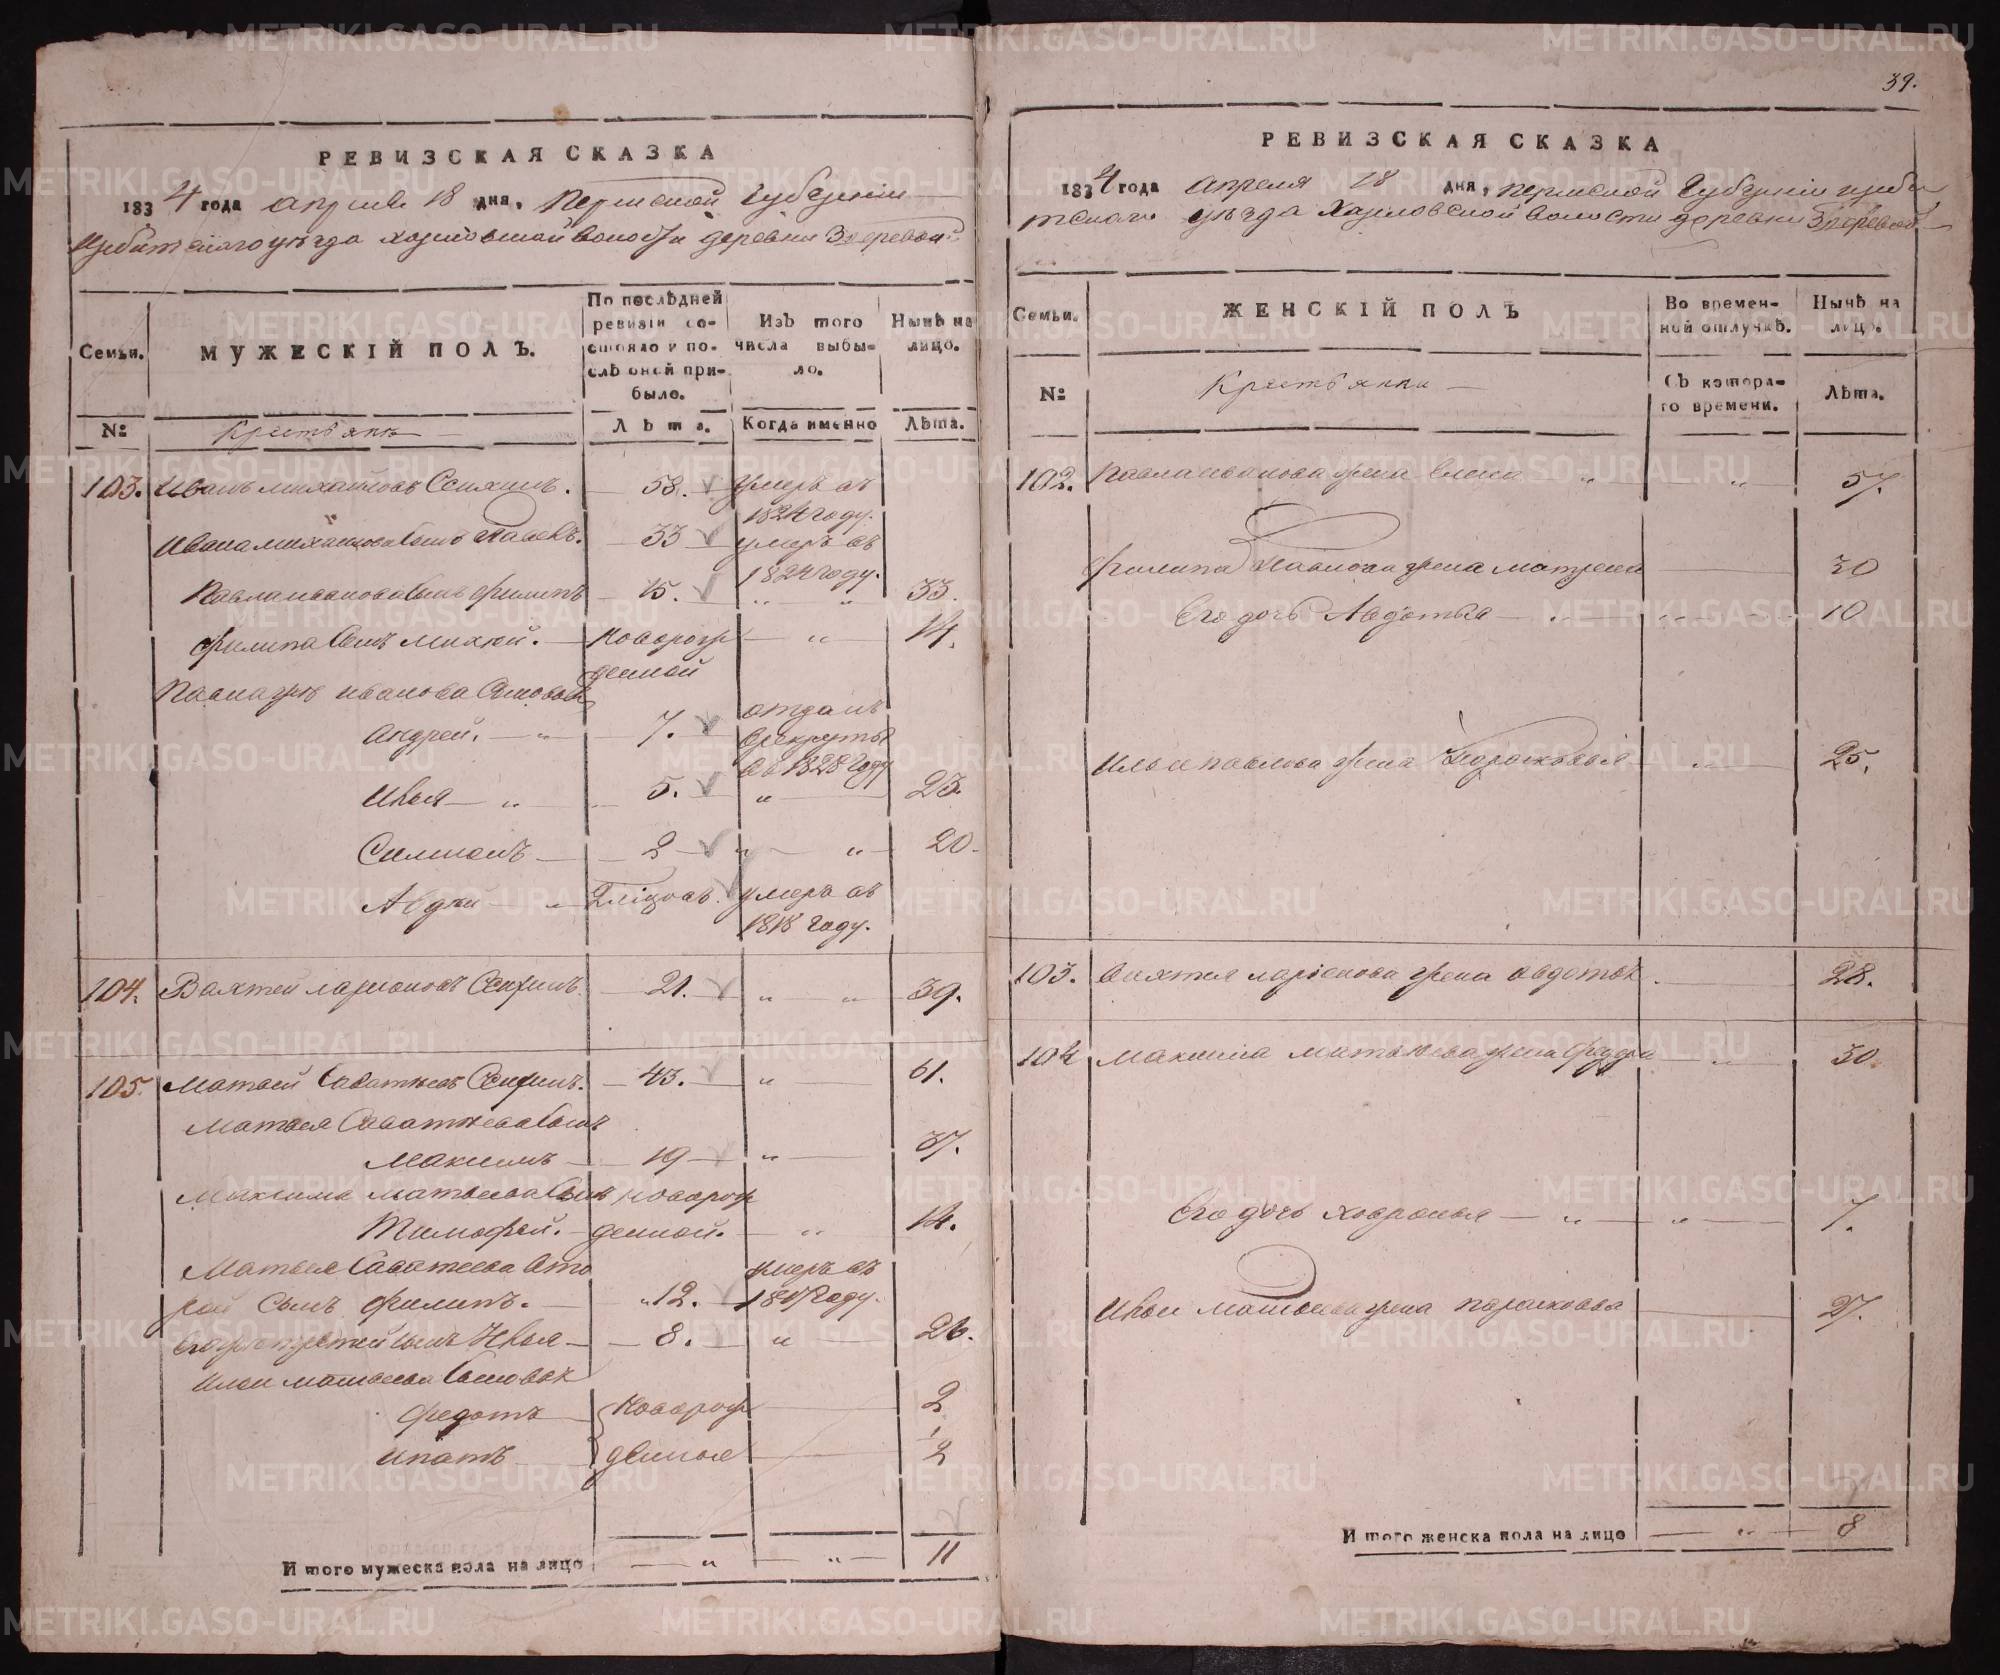 РЕВИЗСКАЯ СКАЗКА
1834 года апреля 18 дня, Пермской Губернии
уезда волости деревни
Семьи.
МУЖЕСКІЙ ПОЛЪ.
По послѣдней ревизіи состояло и послѣ оной прибыло.
Изъ того числа выбыло.
Нынѣ на лицо.
№
Крестьяне
Лѣта.
Когда именно
Лѣта.
103. Иванъ Михайловъ 58. умеръ въ
1824 году.
Ивана Михайлова сынъ Павелъ. 33 умеръ въ
1824 году.
Павла Иванова сынъ Филипъ 15. " " 33.
Филипа сынъ Михей. новорож " 14.
денной
Иванова сыновья
Андрей. " 7. отданъ
в рекруты
въ 1828 году
Илья " 5. " 23.
Симионъ 2 " " 20.
Авдей " умеръ въ
1818 году.
104. Ларионовъ 21. " " 39.
105. Матвей Саватеевъ 43. " 61.
Матвея Саватеева сынъ
Максимъ 19 " 37.
Максима Матвеева сынъ новорож
Тимофей. денной. " 14.
Матвея Саватеева вто умеръ въ
рой сынъ Филипъ. 12. году.
третей сынъ Илья 8. " 26.
Ильи Матвеева сыновья
Федотъ новорож 2
Ипатъ денныя 2
И того мужеска пола на лицо " " 11
39.
РЕВИЗСКАЯ СКАЗКА
1834 года апреля 18 дня, Пермской Губернии
уезда волости деревни
Семьи.
ЖЕНСКІЙ ПОЛЪ
Во временной отлучкѣ.
Нынѣ на лицо.
№
Крестьянки
Съ котораго времени.
Лѣта.
102. Павла Иванова жена " " 57.
Филипа Павлова жена Матрена 30
Его дочь Авдотья " " 10
Ильи Павлова жена " 25.
103. Ларионова жена Авдотья. 28.
104 Максима Матвеева жена " 30.
Его дочь Ховронья " " 7.
Ильи Матвеева жена Парасковья 27.
И того женска пола на лицо " 8
METRIKI.GASO-URAL.RU